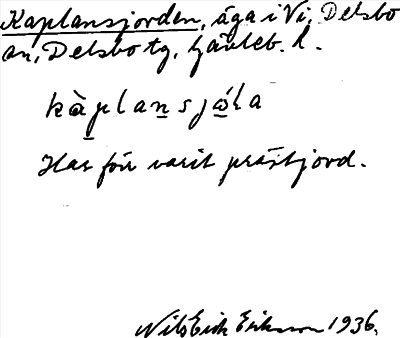 Kaplansjorden, äga i Vi, Delsbo
sn, Delsbo tg, Gävleb. l.
kàplansjó̱la
Har förr varit prästjord.
Nils Erik Eriksson 1936.